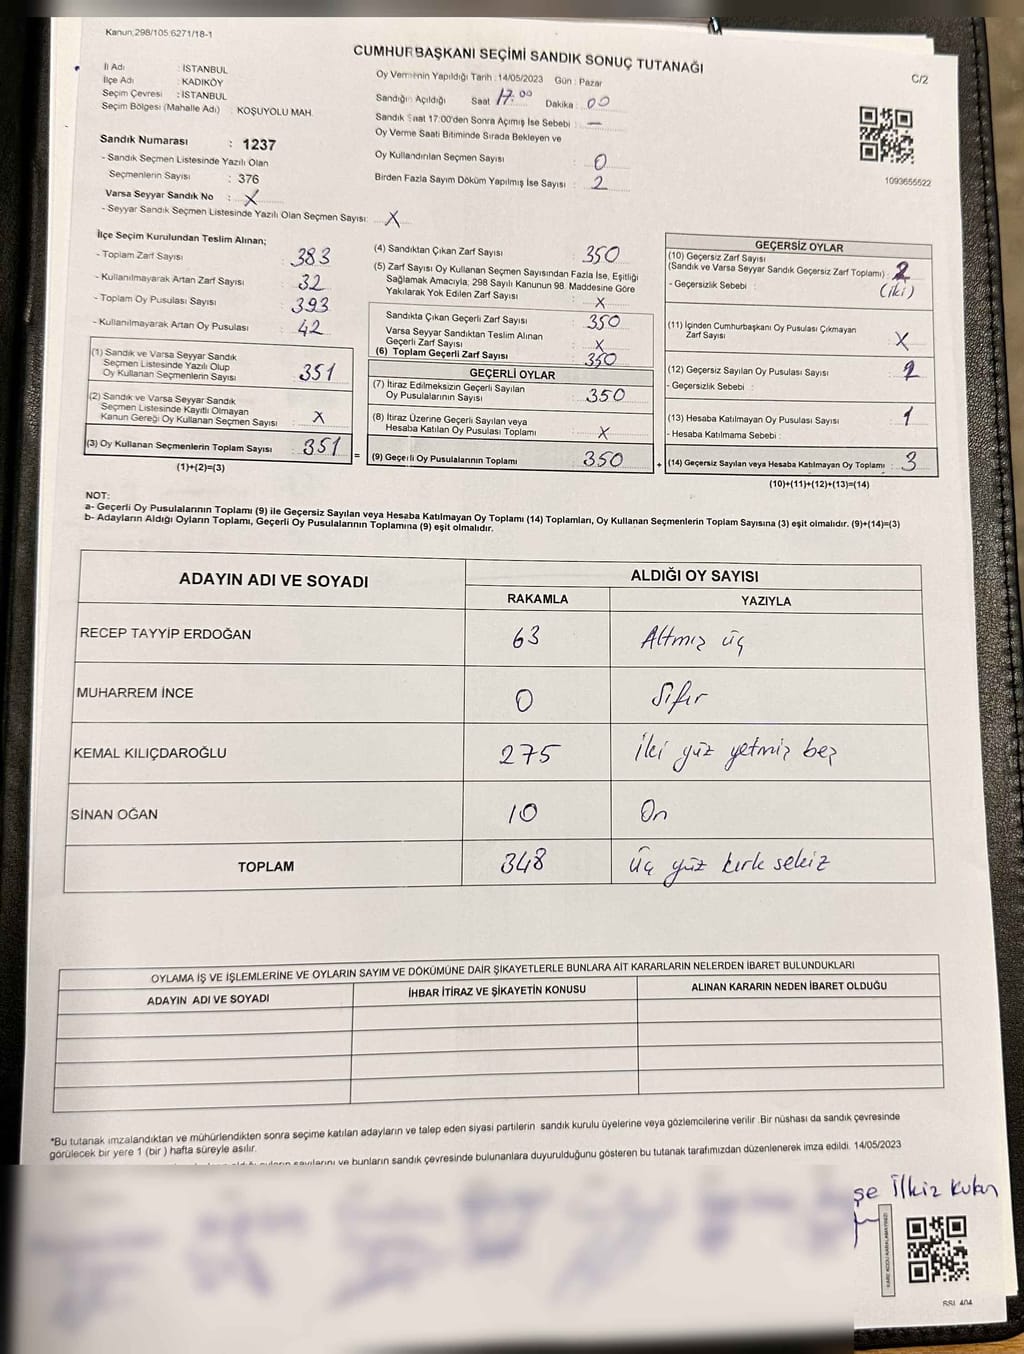 Kanun,298/105 6271/18-1
CUMHURBAŞKANI SEÇİMİ SANDIK SONUÇ TUTANAĞI
C/2
İl Adı : İSTANBUL
İlçe Adı : KADIKÖY
Seçim Çevresi : İSTANBUL
Seçim Bölgesi (Mahalle Adı) : KOŞUYOLU MAH.
Sandık Numarası : 1237
- Sandık Seçmen Listesinde Yazılı Olan
Seçmenlerin Sayısı : 376
Varsa Seyyar Sandık No : X
- Seyyar Sandık Seçmen Listesinde Yazılı Olan Seçmen Sayısı: X
Oy Vermenin Yapıldığı Tarih : 14/05/2023 Gün : Pazar
Sandığın Açıldığı Saat 17:00 Dakika : 00
Sandık Saat 17:00'den Sonra Açımış İse Sebebi : —
Oy Verme Saati Bitiminde Sırada Bekleyen ve
Oy Kullandırılan Seçmen Sayısı : 0
Birden Fazla Sayım Döküm Yapılmış İse Sayısı : 2
1093655522
İlçe Seçim Kurulundan Teslim Alınan;
- Toplam Zarf Sayısı : 383
- Kullanılmayarak Artan Zarf Sayısı : 32
- Toplam Oy Pusulası Sayısı : 393
- Kullanılmayarak Artan Oy Pusulası : 42
(1) Sandık ve Varsa Seyyar Sandık
Seçmen Listesinde Yazılı Olup
Oy Kullanan Seçmenlerin Sayısı : 351
(2) Sandık ve Varsa Seyyar Sandık
Seçmen Listesinde Kayıtlı Olmayan
Kanun Gereği Oy Kullanan Seçmen Sayısı : X
(3) Oy Kullanan Seçmenlerin Toplam Sayısı : 351
(1)+(2)=(3)
=
(4) Sandıktan Çıkan Zarf Sayısı : 350
(5) Zarf Sayısı Oy Kullanan Seçmen Sayısından Fazla İse, Eşitliği
Sağlamak Amacıyla, 298 Sayılı Kanunun 98. Maddesine Göre
Yakılarak Yok Edilen Zarf Sayısı : X
Sandıkta Çıkan Geçerli Zarf Sayısı : 350
Varsa Seyyar Sandıktan Teslim Alınan
Geçerli Zarf Sayısı : X
(6) Toplam Geçerli Zarf Sayısı : 350
GEÇERLİ OYLAR
(7) İtiraz Edilmeksizin Geçerli Sayılan
Oy Pusulalarının Sayısı : 350
(8) İtiraz Üzerine Geçerli Sayılan veya
Hesaba Katılan Oy Pusulası Toplamı : X
(9) Geçerli Oy Pusulalarının Toplamı : 350
+
GEÇERSİZ OYLAR
(10) Geçersiz Zarf Sayısı
(Sandık ve Varsa Seyyar Sandık Geçersiz Zarf Toplamı) : 2
- Geçersizlik Sebebi : (iki)
(11) İçinden Cumhurbaşkanı Oy Pusulası Çıkmayan
Zarf Sayısı : X
(12) Geçersiz Sayılan Oy Pusulası Sayısı :
- Geçersizlik Sebebi :
(13) Hesaba Katılmayan Oy Pusulası Sayısı : 1
- Hesaba Katılmama Sebebi :
(14) Geçersiz Sayılan veya Hesaba Katılmayan Oy Toplamı : 3
(10)+(11)+(12)+(13)=(14)
NOT:
a- Geçerli Oy Pusulalarının Toplamı (9) ile Geçersiz Sayılan veya Hesaba Katılmayan Oy Toplamı (14) Toplamları, Oy Kullanan Seçmenlerin Toplam Sayısına (3) eşit olmalıdır. (9)+(14)=(3)
b- Adayların Aldığı Oyların Toplamı, Geçerli Oy Pusulalarının Toplamına (9) eşit olmalıdır.
ADAYIN ADI VE SOYADI ALDIĞI OY SAYISI
RAKAMLA YAZIYLA
RECEP TAYYİP ERDOĞAN 63 Altmış üç
MUHARREM İNCE 0 Sıfır
KEMAL KILIÇDAROĞLU 275 İki yüz yetmiş beş
SİNAN OĞAN 10 On
TOPLAM 348 üç yüz kırk sekiz
OYLAMA İŞ VE İŞLEMLERİNE VE OYLARIN SAYIM VE DÖKÜMÜNE DAİR ŞİKAYETLERLE BUNLARA AİT KARARLARIN NELERDEN İBARET BULUNDUKLARI
ADAYIN ADI VE SOYADI İHBAR İTİRAZ VE ŞİKAYETİN KONUSU ALINAN KARARIN NEDEN İBARET OLDUĞU
*Bu tutanak imzalandıktan ve mühürlendikten sonra seçime katılan adayların ve talep eden siyasi partilerin sandık kurulu üyelerine veya gözlemcilerine verilir. Bir nüshası da sandık çevresinde
görülecek bir yere 1 (bir ) hafta süreyle asılır.
sayılarını ve bunların sandık çevresinde bulunanlara duyurulduğunu gösteren bu tutanak tarafımızdan düzenlenerek imza edildi. 14/05/2023
şe İlkiz